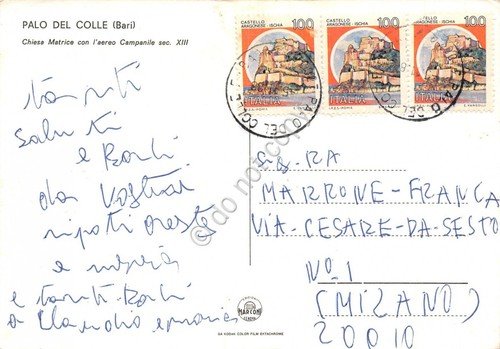 PALO DEL COLLE (Bari)
Chiesa Matrice con l'aereo Campanile sec. XIII
CASTELLO ARAGONESE - ISCHIA 100
CASTELLO ARAGONESE - ISCHIA 100
CASTELLO ARAGONESE - ISCHIA 100
ITALIA
ITALIA
ITALIA
tanti
saluti
e Baci
da Vostri
nipoti oreste
e
e tanti Baci
a Claudio e
SIG.RA
MARRONE-FRANCA
VIA-CESARE-DA-SESTO
No. 1
(MILANO)
20010
MARCONI
GA KODAK COLOR FILM EKTACHROME
do not copy